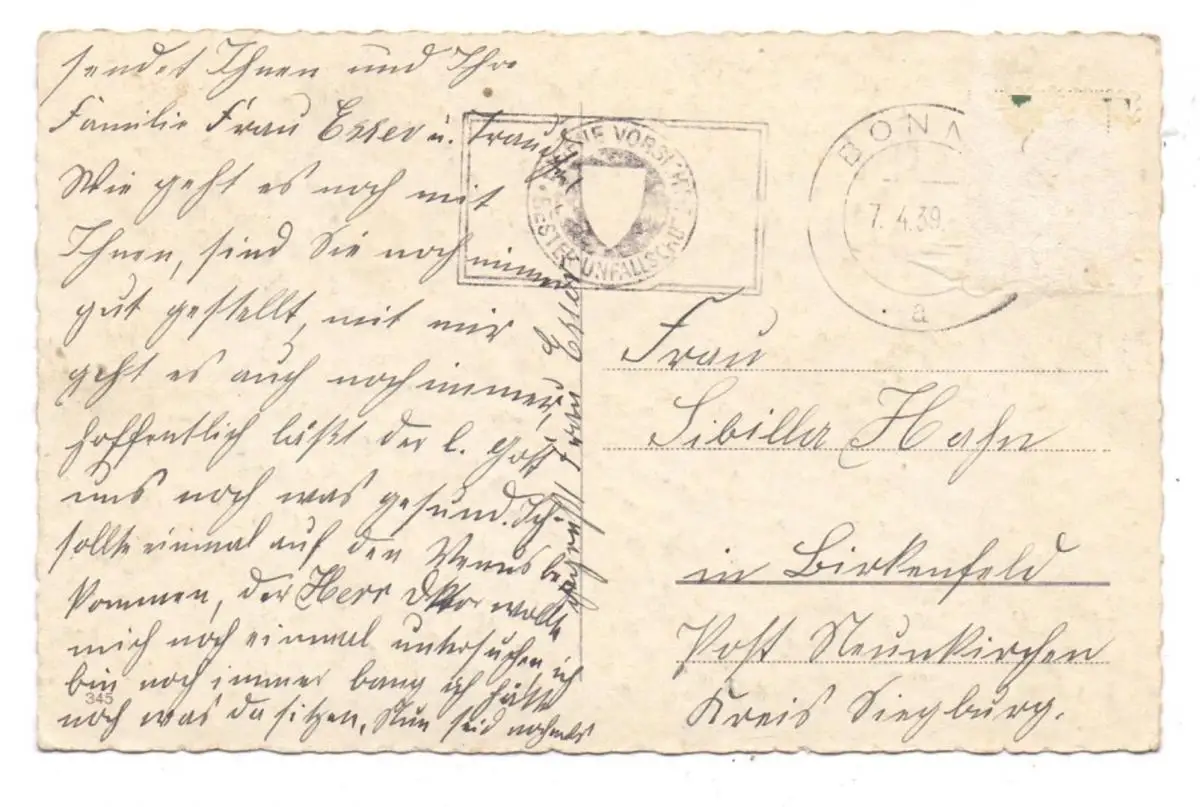 sendet Ihnen und Ihre
Familie Frau Esser u. Traudchen
Wie geht es noch mit
Ihnen, sind Sie noch immer
gut gestellt, mit mir
geht es auch noch immer,
hoffentlich läßt der l. Gott
uns noch was gesund. Ich
sollte einmal auf den Venusbe
kommen, der Herr wollte
mich noch einmal untersuchen ich
bin noch immer bang ich hätte
noch was da sitzen. Nun seid nochmals
Frau Esser
345
SIE VORSICHT
BESTER UNFALLSCHUTZ
BONN
7.4.39.
a
Frau
Sibilla Hahn
in Birkenfeld
Post Neunkirchen
Kreis Siegburg.